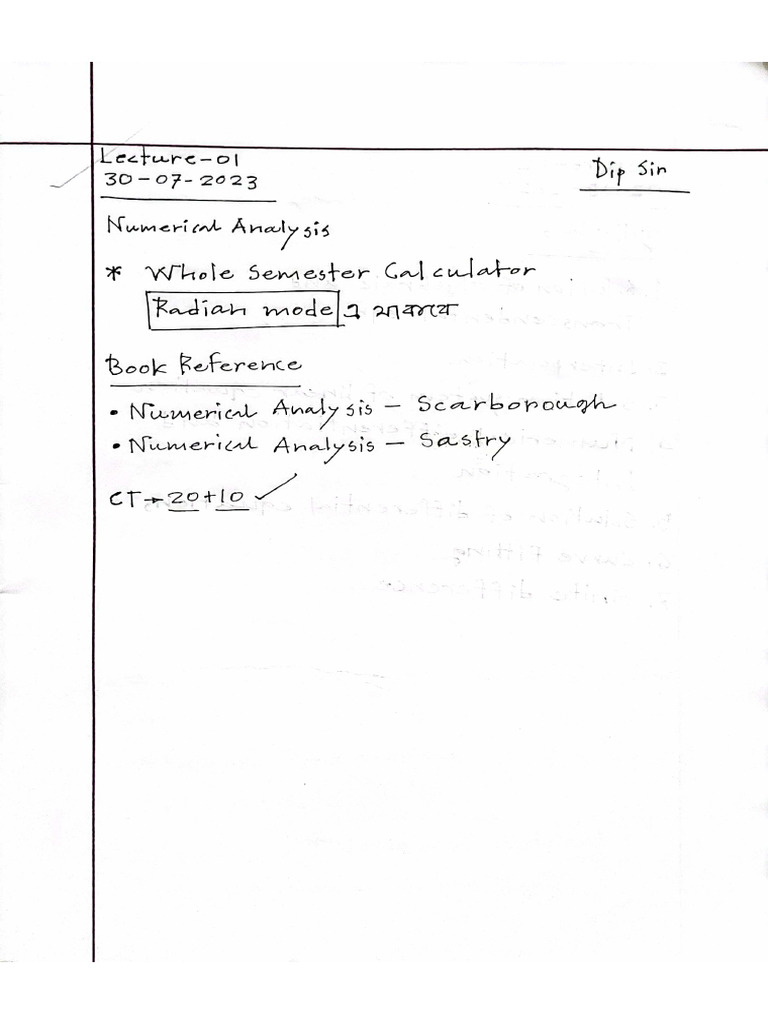 Lecture-01
30-07-2023
Dip Sir
Numerical Analysis
* Whole Semester Calculator
Radian mode এ থাকবে
Book Reference
• Numerical Analysis – Scarborough
• Numerical Analysis – Sastry
CT → 20+10 ✓